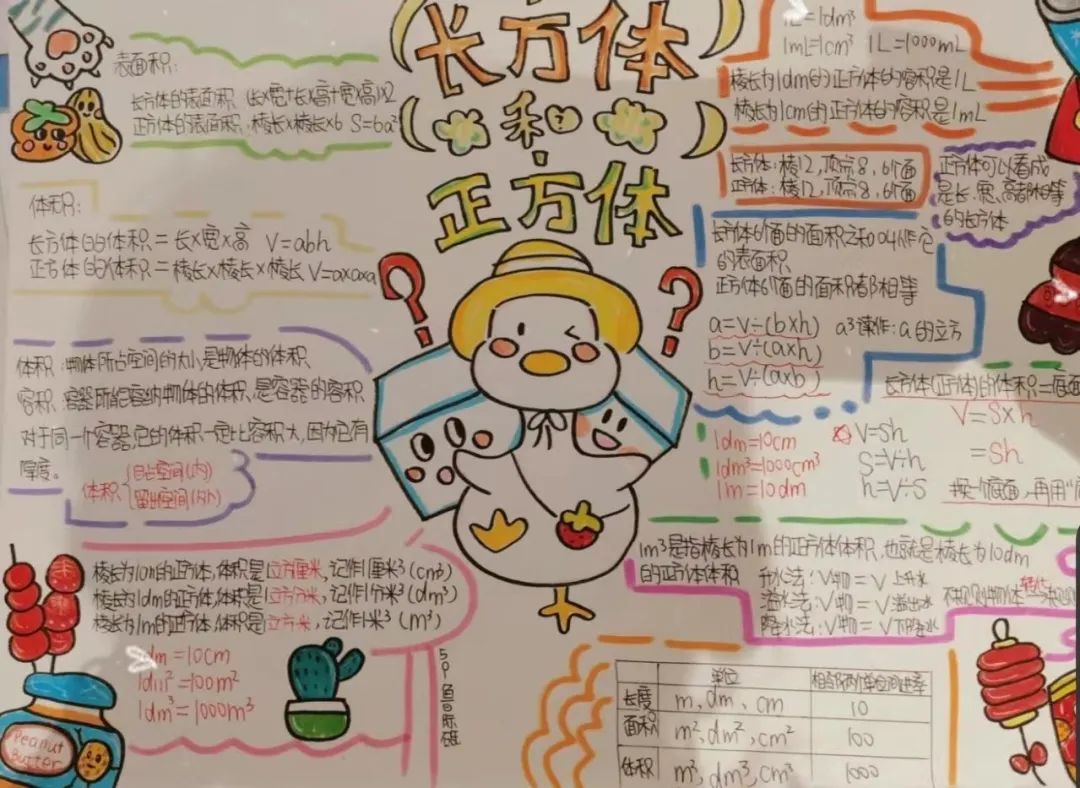 长方体
和
正方体
表面积:
长方体的表面积:(长×宽+长×高+宽×高)×2
正方体的表面积:棱长×棱长×6 S=6a²
体积:
长方体的体积=长×宽×高 V=abh
正方体的体积=棱长×棱长×棱长 V=a×a×a
体积:物体所占空间的大小,是物体的体积.
容积:容器所能容纳物体的体积,是容器的容积
对于同一个容器,它的体积一定比容积大,因为它有
厚度。
体积
自占空间(内)
留出空间(外)
棱长为1cm的正方体,体积是1立方厘米,记作1厘米³(cm³)
棱长为1dm的正方体,体积是1立方分米,记作1分米³(dm³)
棱长为1m的正方体,体积是1立方米,记作1米³(m³)
1dm=10cm
1dm²=100m²
1dm³=1000m³
Peanut
Butter
1L=1dm³
1mL=1cm³ 1L=1000mL
棱长为1dm的正方体的容积是1L
棱长为1cm的正方体的容积是1mL
长方体:棱12,顶点8,6个面
正方体:棱12,顶点8,6个面
正方体可以看成
是长、宽、高都相等
的长方体
长方体6个面的面积之和叫作它
的表面积
正方体6个面的面积都相等
a=V÷(b×h) a³读作:a的立方
b=V÷(a×h)
h=V÷(a×b)
长方体(正方体)的体积=底面
V=S×h
=Sh
1dm=10cm
1dm³=1000cm³
1m=10dm
V=Sh
S=V÷h
h=V÷S
找一个底面,再用
1m³是指棱长为1m的正方体体积,也就是棱长为10dm
的正方体体积
升水法:V物=V上升水
溢水法:V物=V溢出水
降水法:V物=V下降水
不规则物体 转化
单位 相邻两个单位间进率
长度 m、dm、cm 10
面积 m²、dm²、cm² 100
体积 m³、dm³、cm³ 1000